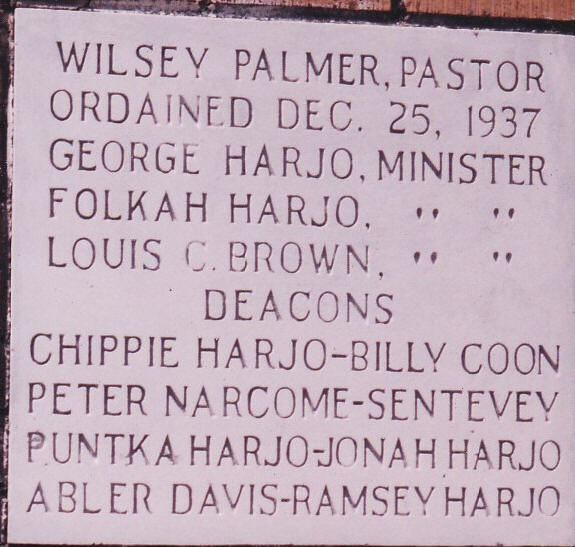 WILSEY PALMER, PASTOR
ORDAINED DEC. 25, 1937
GEORGE HARJO, MINISTER
FOLKAH HARJO, '' ''
LOUIS C. BROWN, '' ''
DEACONS
CHIPPIE HARJO-BILLY COON
PETER NARCOME-SENTEVEY
PUNTKA HARJO-JONAH HARJO
ABLER DAVIS-RAMSEY HARJO